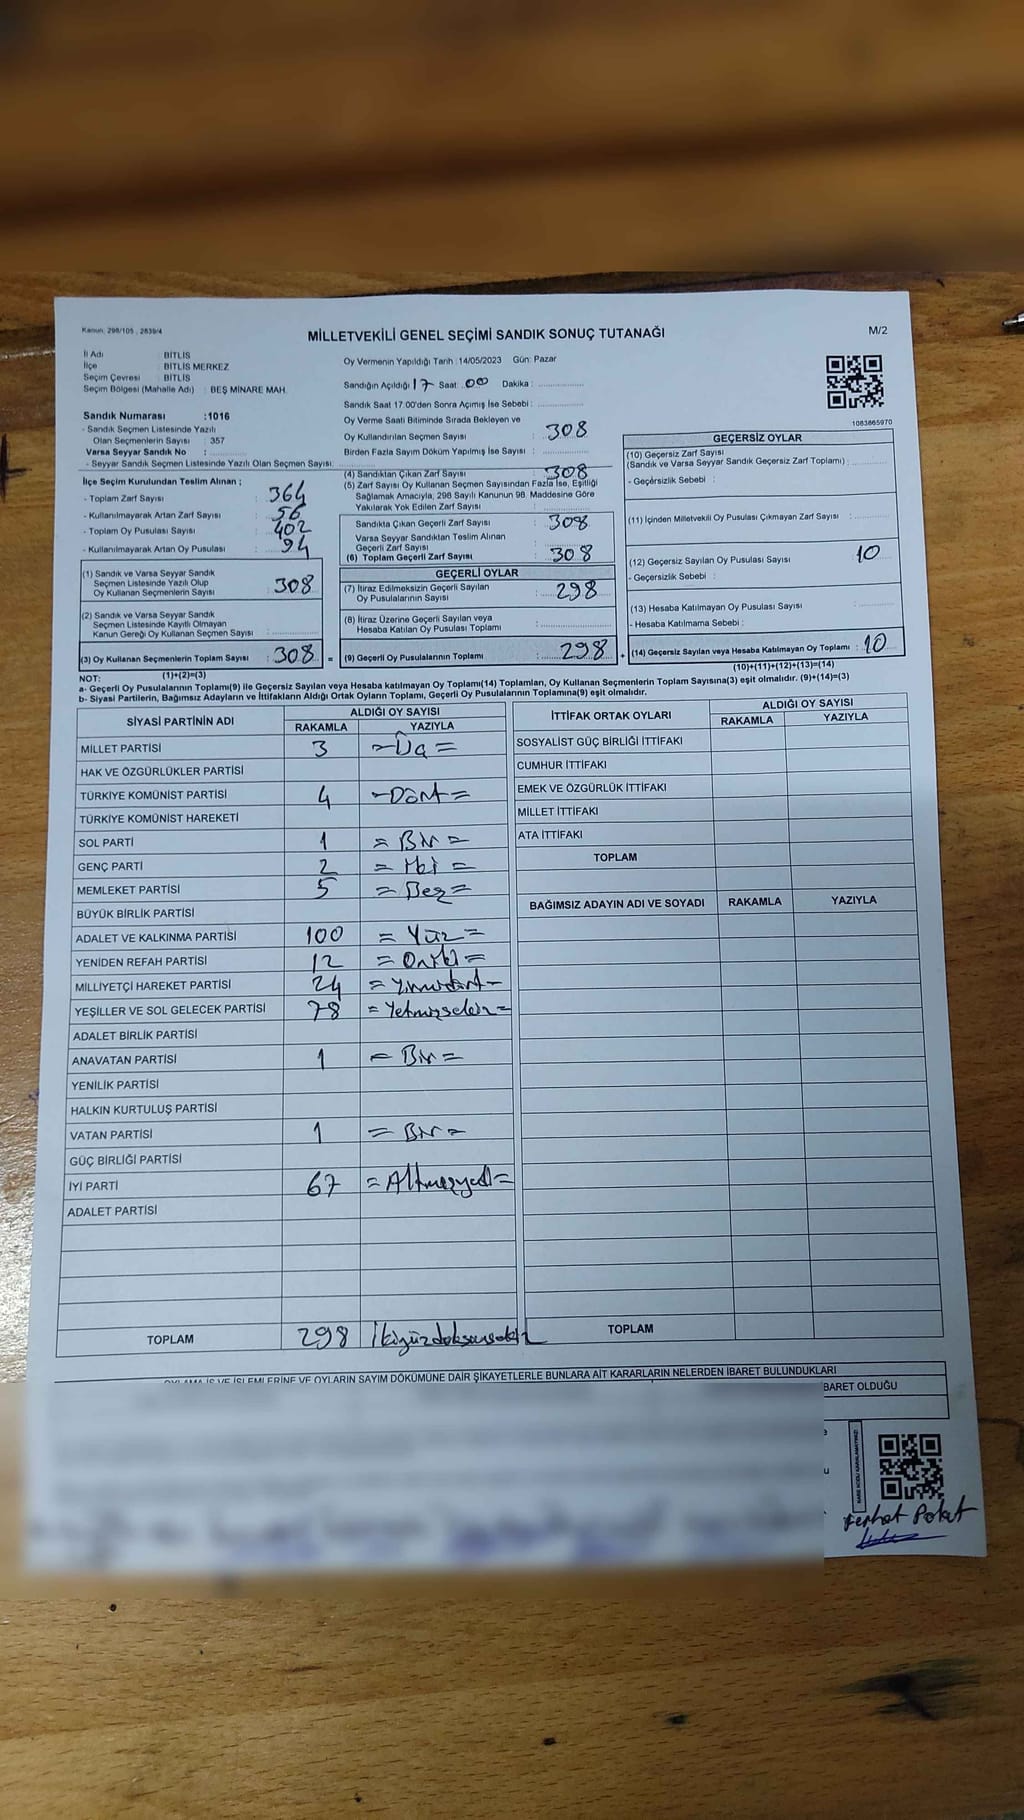 Kanun: 298/105 , 2839/4
MİLLETVEKİLİ GENEL SEÇİMİ SANDIK SONUÇ TUTANAĞI
M/2
İl Adı : BİTLİS
İlçe : BİTLİS MERKEZ
Seçim Çevresi : BİTLİS
Seçim Bölgesi (Mahalle Adı) : BEŞ MİNARE MAH.
Sandık Numarası :1016
- Sandık Seçmen Listesinde Yazılı
Olan Seçmenlerin Sayısı : 357
Varsa Seyyar Sandık No :
- Seyyar Sandık Seçmen Listesinde Yazılı Olan Seçmen Sayısı:
İlçe Seçim Kurulundan Teslim Alınan ;
- Toplam Zarf Sayısı : 364
- Kullanılmayarak Artan Zarf Sayısı : 56
- Toplam Oy Pusulası Sayısı : 402
- Kullanılmayarak Artan Oy Pusulası : 94
(1) Sandık ve Varsa Seyyar Sandık
Seçmen Listesinde Yazılı Olup
Oy Kullanan Seçmenlerin Sayısı : 308
(2) Sandık ve Varsa Seyyar Sandık
Seçmen Listesinde Kayıtlı Olmayan
Kanun Gereği Oy Kullanan Seçmen Sayısı :
(3) Oy Kullanan Seçmenlerin Toplam Sayısı : 308 =
(1)+(2)=(3)
Oy Vermenin Yapıldığı Tarih :14/05/2023 Gün: Pazar
Sandığın Açıldığı 17 Saat: 00 Dakika :
Sandık Saat 17:00'den Sonra Açılmış İse Sebebi :
Oy Verme Saati Bitiminde Sırada Bekleyen ve
Oy Kullandırılan Seçmen Sayısı : 308
Birden Fazla Sayım Döküm Yapılmış İse Sayısı :
(4) Sandıktan Çıkan Zarf Sayısı : 308
(5) Zarf Sayısı Oy Kullanan Seçmen Sayısından Fazla İse, Eşitliği
Sağlamak Amacıyla, 298 Sayılı Kanunun 98. Maddesine Göre
Yakılarak Yok Edilen Zarf Sayısı :
Sandıkta Çıkan Geçerli Zarf Sayısı : 308
Varsa Seyyar Sandıktan Teslim Alınan
Geçerli Zarf Sayısı :
(6) Toplam Geçerli Zarf Sayısı : 308
GEÇERLİ OYLAR
(7) İtiraz Edilmeksizin Geçerli Sayılan
Oy Pusulalarının Sayısı : 298
(8) İtiraz Üzerine Geçerli Sayılan veya
Hesaba Katılan Oy Pusulası Toplamı :
(9) Geçerli Oy Pusulalarının Toplamı : 298 +
1083865970
GEÇERSİZ OYLAR
(10) Geçersiz Zarf Sayısı
(Sandık ve Varsa Seyyar Sandık Geçersiz Zarf Toplamı) :
- Geçersizlik Sebebi :
(11) İçinden Milletvekili Oy Pusulası Çıkmayan Zarf Sayısı :
(12) Geçersiz Sayılan Oy Pusulası Sayısı : 10
- Geçersizlik Sebebi :
(13) Hesaba Katılmayan Oy Pusulası Sayısı :
- Hesaba Katılmama Sebebi :
(14) Geçersiz Sayılan veya Hesaba Katılmayan Oy Toplamı : 10
(10)+(11)+(12)+(13)=(14)
NOT:
a- Geçerli Oy Pusulalarının Toplamı(9) ile Geçersiz Sayılan veya Hesaba katılmayan Oy Toplamı(14) Toplamları, Oy Kullanan Seçmenlerin Toplam Sayısına(3) eşit olmalıdır. (9)+(14)=(3)
b- Siyasi Partilerin, Bağımsız Adayların ve İttifakların Aldığı Ortak Oyların Toplamı, Geçerli Oy Pusulalarının Toplamına(9) eşit olmalıdır.
SİYASİ PARTİNİN ADI ALDIĞI OY SAYISI
RAKAMLA YAZIYLA
MİLLET PARTİSİ 3 =Üç=
HAK VE ÖZGÜRLÜKLER PARTİSİ
TÜRKİYE KOMÜNİST PARTİSİ 4 =Dört=
TÜRKİYE KOMÜNİST HAREKETİ
SOL PARTİ 1 =Bir=
GENÇ PARTİ 2 =İki=
MEMLEKET PARTİSİ 5 =Beş=
BÜYÜK BİRLİK PARTİSİ
ADALET VE KALKINMA PARTİSİ 100 =Yüz=
YENİDEN REFAH PARTİSİ 12 =Oniki=
MİLLİYETÇİ HAREKET PARTİSİ 24 =Yirmidört=
YEŞİLLER VE SOL GELECEK PARTİSİ 78 =Yetmişsekiz=
ADALET BİRLİK PARTİSİ
ANAVATAN PARTİSİ 1 =Bir=
YENİLİK PARTİSİ
HALKIN KURTULUŞ PARTİSİ
VATAN PARTİSİ 1 =Bir=
GÜÇ BİRLİĞİ PARTİSİ
İYİ PARTİ 67 =Altmışyedi=
ADALET PARTİSİ
TOPLAM 298 İkiyüzdoksansekiz
İTTİFAK ORTAK OYLARI ALDIĞI OY SAYISI
RAKAMLA YAZIYLA
SOSYALİST GÜÇ BİRLİĞİ İTTİFAKI
CUMHUR İTTİFAKI
EMEK VE ÖZGÜRLÜK İTTİFAKI
MİLLET İTTİFAKI
ATA İTTİFAKI
TOPLAM
BAĞIMSIZ ADAYIN ADI VE SOYADI RAKAMLA YAZIYLA
TOPLAM
OYLAMA İŞ VE İŞLEMLERİNE VE OYLARIN SAYIM DÖKÜMÜNE DAİR ŞİKAYETLERLE BUNLARA AİT KARARLARIN NELERDEN İBARET BULUNDUKLARI
BARET OLDUĞU
Ferhat Polat